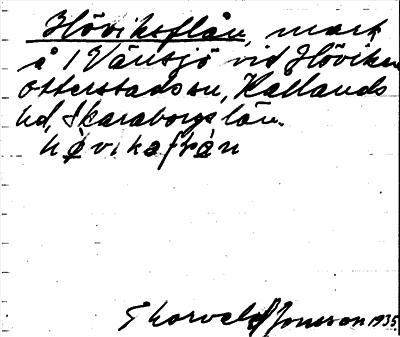 Höviksflån, mark
å 1 Vänsjö vid Höviken
Otterstads sn, Kållands
hd, Skaraborgs län.
hø̀vikaflán
Thorvald Jonsson 1935.